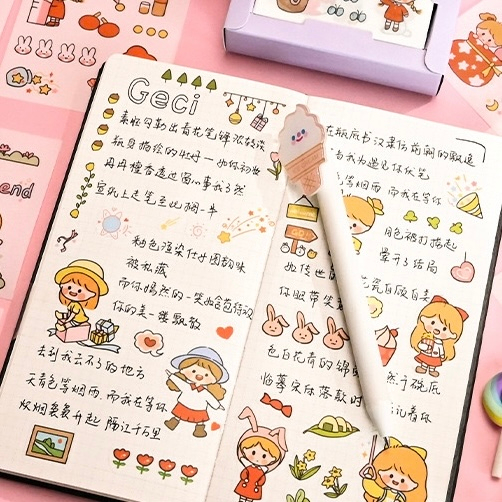 Geci
素胚勾勒出青花笔锋浓转淡
瓶身描绘的牡丹一如你初妆
冉冉檀香透过窗心事我了然
宣纸上走笔至此搁一半
釉色渲染仕女图韵味
被私藏
而你嫣然的一笑如含苞待放
你的美一缕飘散
去到我去不了的地方
天青色等烟雨,而我在等你
炊烟袅袅升起 隔江千万里
end
在瓶底书汉隶仿前朝的飘逸
当我为遇见你伏笔
等烟雨 而我在等你
月色被打捞起
晕开了结局
如传世的 自顾自美
你眼带笑
色白花青的锦 然于碗底
临摹宋体落款时 记着你